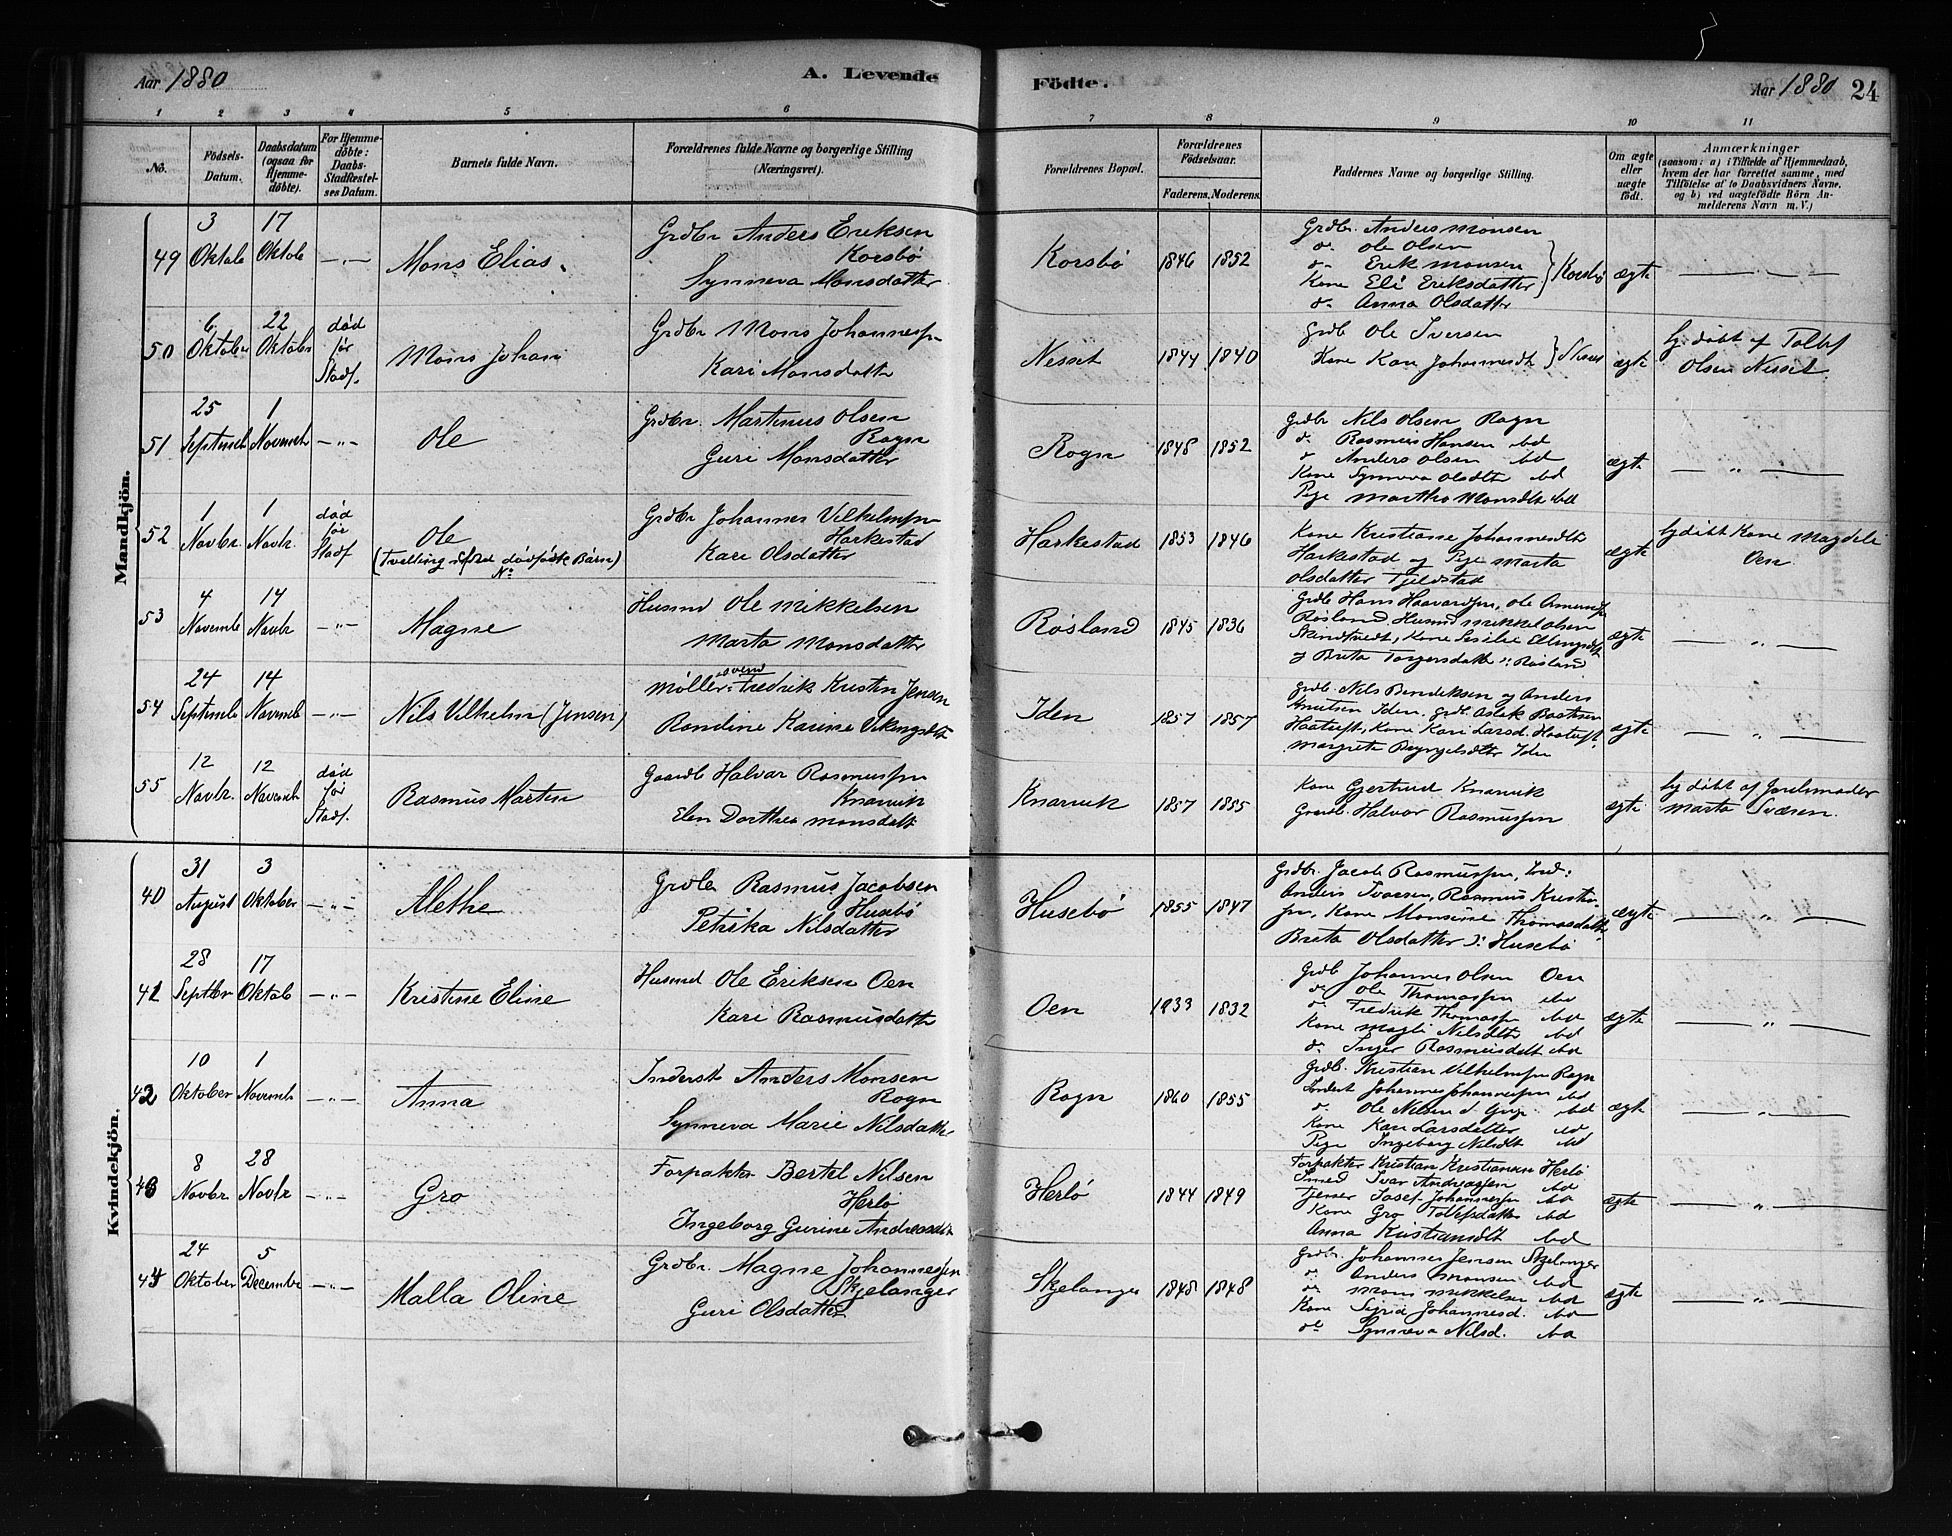 Aar 1880
A. Levende
Födte.
Aar 1880 24
1 2 3 4 5 6 7 8 9 10 11
No.
Födsels-
Datum.
Daabsdatum
(ogsaa for
Hjemme-
döbte).
For Hjemme-
döbte:
Daabs-
Stadfæstel-
ses Datum.
Barnets fulde Navn.
Forældrenes fulde Navne og borgerlige Stilling
(Næringsvei).
Forældrenes Bopæl.
Forældrenes
Födselsaar.
Faderens. Moderens.
Faddernes Navne og borgerlige Stilling.
Om ægte
eller
uægte
födt.
Anmærkninger
(saasom: a) i Tilfælde af Hjemmedaab,
hvem der har forrettet samme, med
Tilföielse af to Daabsvidners Navne,
og b) ved uægtefödte Börn An-
melderens Navn m. V.)
Mandkjön.
49
3
Oktob
17
Oktob
—"—
Mons Elias
Grdbr Anders Eriksen
Korsbø
Synneva Monsdatter
Korsbø
1846 1852
Grdbr. Anders Monsen
do Ole Olsen
do Erik Monsen
Kone Eli Eriksdatter
do Anna Olsdatter
Korsbø
ægte
— " —
50
6
Oktober
22
Oktober
død
før
Stadf.
Mons Johan
Grdbr Mons Johannessn
Kari Monsdatter
Nesset
1844 1840
Grdb Ole Iversen
Kone Kari Johannesdt
ægte
hj. døbt af Tollef
Olsen Nesset
51
25
Septemb
1
Novemb
—"—
Ole
Grdbr. Martinus Olsen
Rogn
Guri Monsdatter
Rogn
1848 1852
Grdbr Nils Olsen Rogn
do Rasmus Hansen ibd
do Anders Olsen ibd
Kone Synneva Olsdtr ibd
Pige Martha Monsdt ibd
ægte
— " —
52
1
Novbr.
1
Novbr.
død
før
Stadf
Ole
Grdbr Johannes Vilhelmsn
Harkestad
Kari Olsdatter
Harkestad
1853 1846
Kone Kristianse Johannesdtr
Harkestad og Pige Marta
Olsdatter Tjeldstad
ægte
hj døbt Kone Magdeli
Oen
53
4
Novemb
14
Novbr
—"—
Magne
Husmd Ole Mikkelsen
Marta Monsdatter
Røsland
1845 1836
Røsland, Husmd Mikkel Olsen
ægte
— " —
54
24
Septemb
14
Novemb
—"—
Nils Vilhelm (Jensen)
Møllersvend Fredrik Kristin Jensen
Rondine Karine Vikingsdt
Iden
1857 1857
Grdb. Nils Bendiksen og Anders
Knutsen Iden, Grdb. Aslak Bastesen
ægte
— " —
55
12
Novbr.
12
Novemb
død
før
Stadf.
Rasmus Martin
Gaardb Halvor Rasmussen
Knarvik
Elen Dorthea Monsdatt
Knarvik
1857 1855
Kone Gjertrud Knarvik
Gaardb. Halvor Rasmussen
ægte
hj døbt af Jordemoder
Marta Sværen.
Kvindekjön.
40
31
August
3
Oktober
—"—
Alethe
Grdbr Rasmus Jacobsen
Husebø
Petrika Nilsdatter
Husebø
1855 1847
Grdbr. Jacob Rasmussen, Ind:
Anders Ivarsen, Rasmus Kristia
sn, Kone Monsine Thomasdatter
Brita Olsdatter : Husebø
ægte
— " —
41
28
Septbr
17
Oktob
—"—
Kristine Eline
Husmd Ole Eriksen Oen
Kari Rasmusdatter
Oen
1833 1832
Grdb Johannes Olsen Oen
do Ole Thomassen ibd
do Fredrik Thomassen ibd
Kone Magli Nilsdtr ibd
do Inger Rasmusdatt ibd
ægte
— " —
42
10
Oktober
1
Novemb
—"—
Anna
Inderst Anders Monsen
Rogn
Synneva Marie Nilsdatter
Rogn
1860 1855
Grdb. Kristian Vilhelmsn Rogn
Inderst Johannes Johannessen ibd
do Ole Nilsen d. yngr. ibd
Kone Kari Larsdatter ibd
Pige Ingeborg Nilsdt ibd
ægt
— " —
43
8
Novbr
28
Novbr
—"—
Gro
Forpakter Bertel Nilsen
Herlø
Ingeborg Gurine Andreasdt
Herlø
1844 1849
Forpakter Kristian Kristiansen Herlø
Smed Ivar Andreassen ibd
Tjener Josef Johannessen ibd
Kone Gro Tollefsdatter ibd
Anna Kristiansdt ibd
ægte
— " —
44
24
Oktober
5
Decembr
—"—
Malla Oline
Grdbr. Magne Johannessen
Skjelanger
Guri Olsdatter
Skjelanger
1848 1848
Grdbr. Johannes Jensen Skjelanger
do Anders Monsen ibd
do Mons Mikkelsen ibd
Kone Syria Johannesd. ibd
do Synneva Nilsd. ibd
ægte
— " —